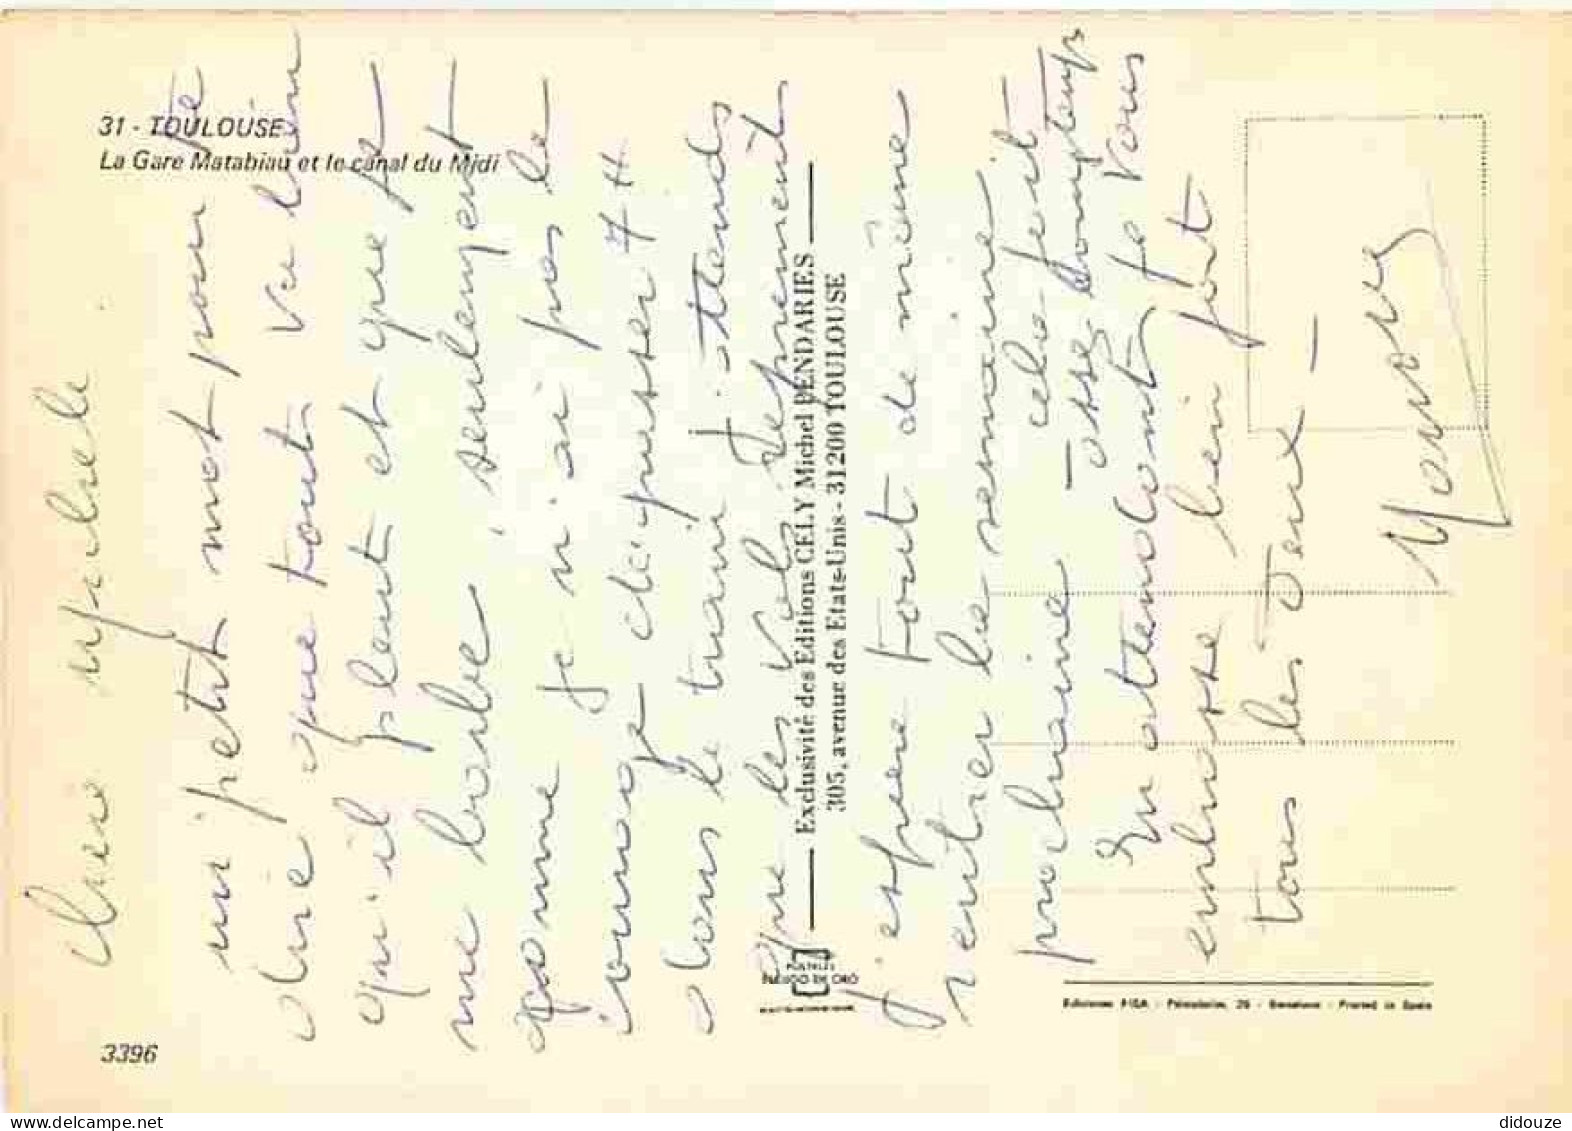 31 - TOULOUSE
La Gare Matabiau et le canal du Midi
Chère
un petit mot pour te
dire que tout va bien
qu'il pleut et que je
me seulement
comme je n'ai pas le
courage de passer 7 H
dans le train j'attends
que les vols reprennent
j'espère tout de même
rentrer la semaine
prochaine - cela fait
assez longtemps
En attendant je vous
embrasse bien fort
tous les deux -
Exclusivité des Editions CELY Michel PENDARIES
305, avenue des Etats-Unis - 31200 TOULOUSE
POSTALES
ESCUDO DE ORO
Ediciones FISA - Palaudarias, 26 - Barcelona - Printed in Spain
3396
delcampe.net
didouze